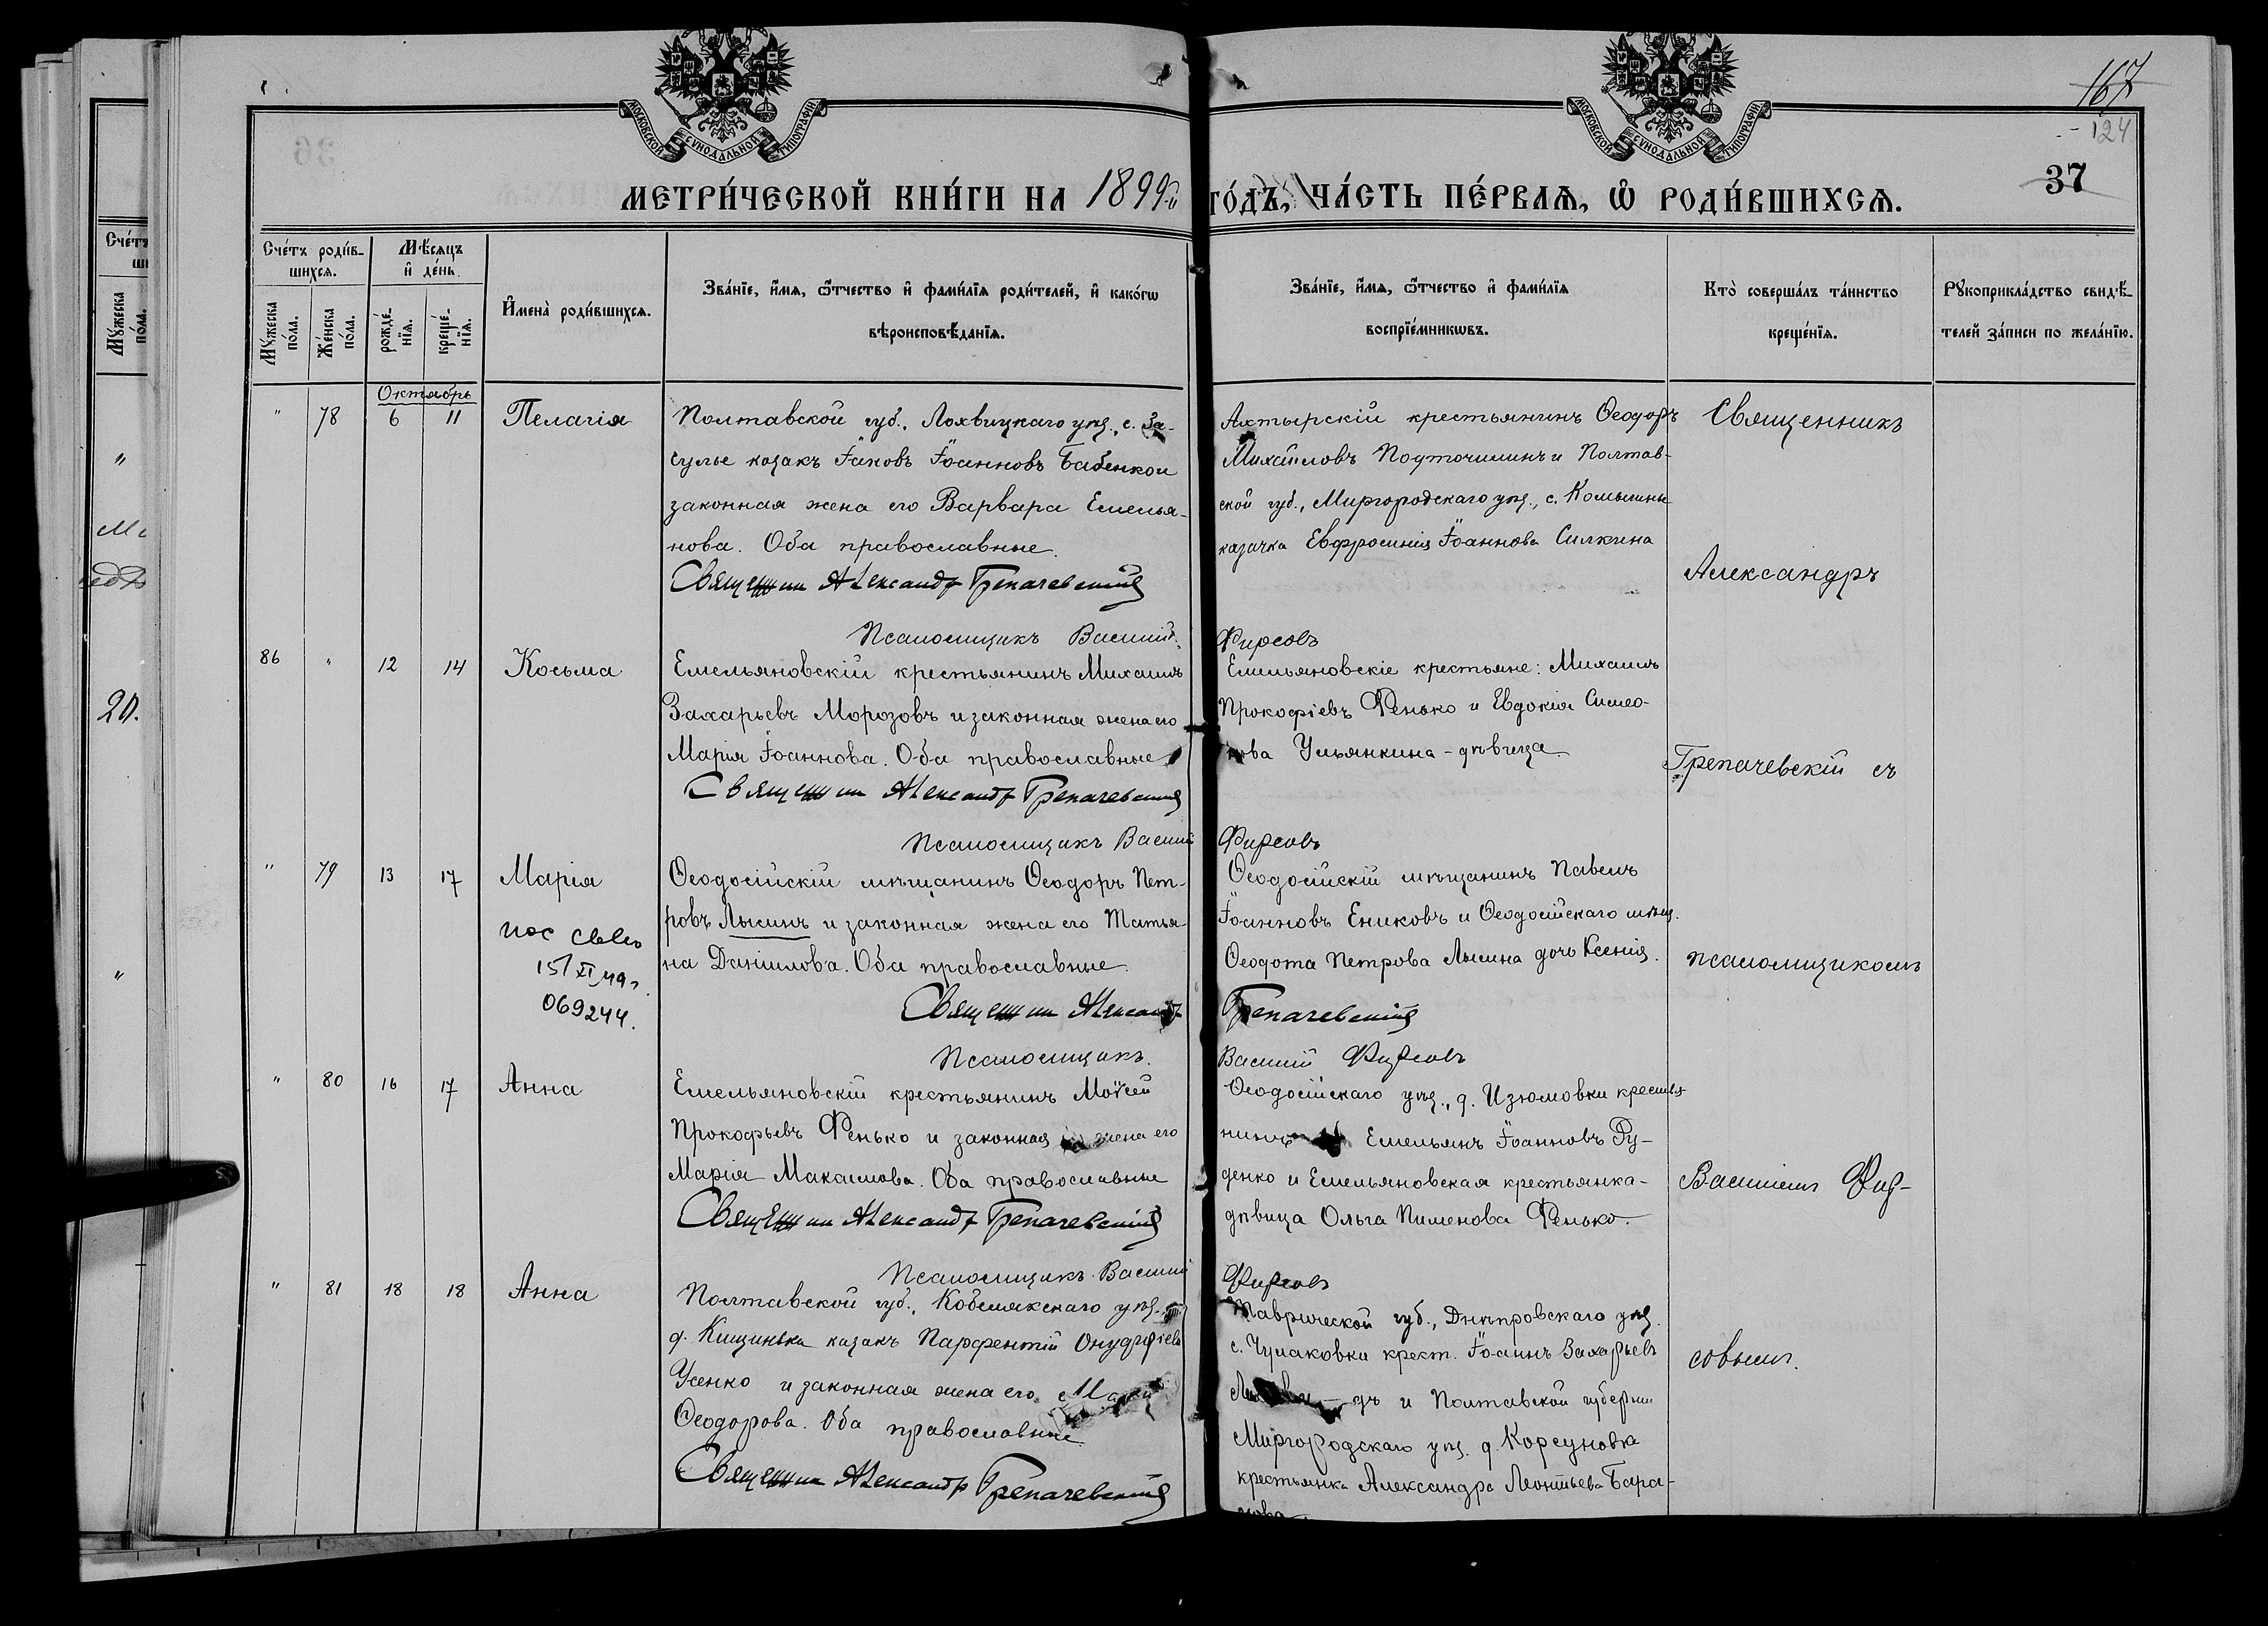 167
124
37
МОСКОВСКОЙ СѴНОДАЛЬНОЙ ТИПОГРАФІИ
МОСКОВСКОЙ СѴНОДАЛЬНОЙ ТИПОГРАФІИ
МЕТРИ́ЧЕСКОЙ КНИ́ГИ НА 1899й ГО́ДЪ, ЧА́СТЬ ПЕ́РВАЯ, Ѽ РОДИ́ВШИХСЯ.
Сче́тъ роди́в-
шихся.
Мѣ́сяцъ
и҆ де́нь.
Мꙋ́жеска по́ла.
Же́нска по́ла.
рожде́-нїя.
креще́-нїя.
И҆мена̀ роди́вшихся.
Зва́нїе, и҆́мя, ѻ҆́тчество и҆ фами́лїя роди́телей, и҆ како́гѡ
вѣроисповѣ́данїя.
Зва́нїе, и҆́мя, ѻ҆́тчество и҆ фами́лїя
воспрїе́мникѡвъ.
Кто̀ соверша́лъ та́инство
креще́нїя.
Рꙋкоприкла́дство свидѣ́-
телей за́писи по жела́нїю.
Октябрь
" 78 6 11 Пелагія
Полтавской губ., Лохвицкаго уѣз., с. За-
сулье козакъ Іаковъ Іоанновъ Бабенко и
законная жена его Варвара Емелья-
нова. Оба православные.
Священник Александр Трепачевский
Псаломщикъ Василій Фирсовъ
Ахтырскій крестьянинъ Ѳеодоръ
Михаиловъ Подточилинъ и Полтав-
ской губ., Миргородскаго уѣз., с. Комышны
казачка Евфросинія Іоаннова Силкина
Священникъ
Александръ
Трепачевскій съ
псаломщикомъ
Василіемъ Фир-
совымъ.
86 " 12 14 Косьма
Емельяновскій крестьянинъ Михаилъ
Захарьевъ Морозовъ и законная жена его
Марія Іоаннова. Оба православные
Священник Александр Трепачевский
Псаломщикъ Василій Фирсовъ
Емельяновскіе крестьяне: Михаилъ
Прокофіевъ Фенько и Евдокія Симео-
нова Ульянкина - дѣвица
" 79 13 17 Марія
15/XI 49г.
069244.
Ѳеодосійскій мѣщанинъ Ѳеодоръ Пет-
ровъ Лысинъ и законная жена его Татья-
на Даніилова. Оба православные.
Священник Александр Трепачевский
Псаломщикъ Василій Фирсовъ
Ѳеодосійскій мѣщанинъ Павелъ
Іоанновъ Ениковъ и Ѳеодосійскаго мѣщ.
Ѳеодота Петрова Лысина дочь Ксенія.
" 80 16 17 Анна
Емельяновскій крестьянинъ Моѵсей
Прокофьевъ Фенько и законная жена его
Марія Максимова. Оба православные
Священник Александр Трепачевский
Псаломщикъ Василій Фирсовъ
Ѳеодосійскаго уѣз., д. Изюмовки крестья-
нинъ Емельянъ Іоанновъ Ру-
денко и Емельяновская крестьянка-
дѣвица Ольга Пименова Фенько.
" 81 18 18 Анна
Полтавской губ., Кобелякскаго уѣз.
д. Кищинька казакъ Парфентій Онуфріевъ
Усенко и законная жена его
Ѳеодорова. Оба православные
Священник Александр Трепачевский
Таврической губ., Днѣпровскаго уѣз.
с. Чулаковки крест. Іоаннъ Захарьевъ
и Полтавской губерніи
Миргородскаго уѣз. д. Корсуновка
крестьянка Александра Леонтьева Бара-
нова